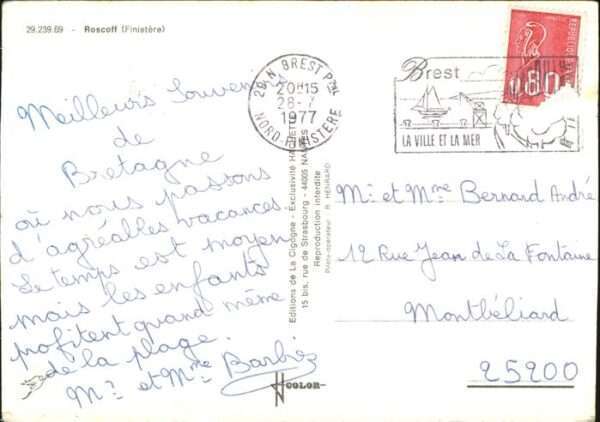 29.239.69 - Roscoff (Finistère)
Meilleurs Souvenirs
de
Bretagne
où nous passons
d'agréables vacances.
Le temps est moyen
mais les enfants
profitent quand même
de la plage.
Mr et Mme Barbier
Editions de La Cigogne - Exclusivité HACHETTE
15 bis, rue de Strasbourg - 44005 NANTES
Reproduction interdite
Photo-opérateur : R. HENRARD
COLOR
29 N. BREST Pal
20H15
28-7
1977
NORD-FINISTERE
Brest
LA VILLE ET LA MER
0,80
Mr et Mme Bernard André
12 Rue Jean de La Fontaine
Montbéliard
25200